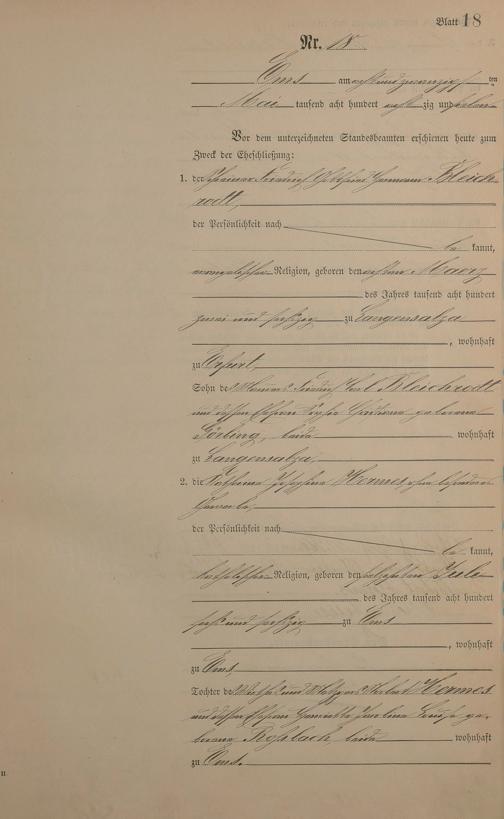 Blatt 18
Nr. 18.
Ems am acht und zwanzigsten
Mai tausend acht hundert acht zig und sieben
Vor dem unterzeichneten Standesbeamten erschienen heute zum
Zweck der Eheschließung:
1. der Friedrich Hermann Bleich
rodt,
der Persönlichkeit nach
be kannt,
evangelischer Religion, geboren den achten Maerz
des Jahres tausend acht hundert
zwei und sechszig zu Langensalza
, wohnhaft
zu Erfurt,
Sohn des Friedrich Carl Bleichrodt
und dessen Ehefrau geborene
Görbing, beide wohnhaft
zu Langensalza,
2. die Katharina Josephine Hermes ohne besonderes
Gewerbe,
der Persönlichkeit nach
be kannt,
katholischer Religion, geboren den Juli
des Jahres tausend acht hundert
sechs und sechszig zu Ems
, wohnhaft
zu Ems
Tochter des und Metzgers Hermes
und dessen Ehefrau Henriette Louise ge-
borene beide wohnhaft
zu Ems.
II